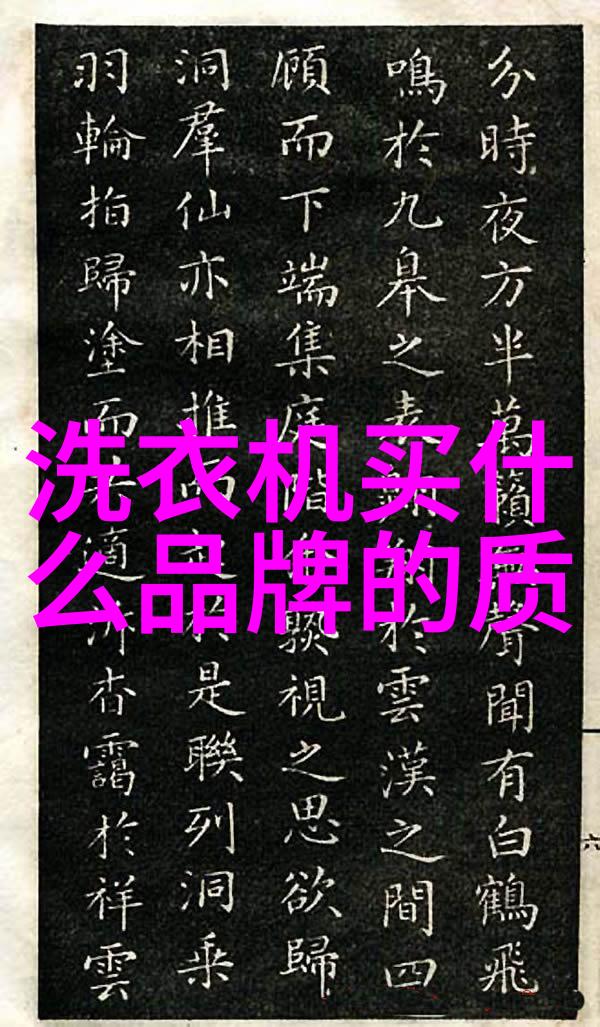 洗衣机买什
么品牌的质
分時夜方半萬籟聲聞有白鶴飛
鳴於九皋之表於雲漢之間四
顧而下端集庭階視之思欲歸
洞羣仙亦相推而於是聯列洞乘
羽輪指歸塗而適杳靄於祥雲
六